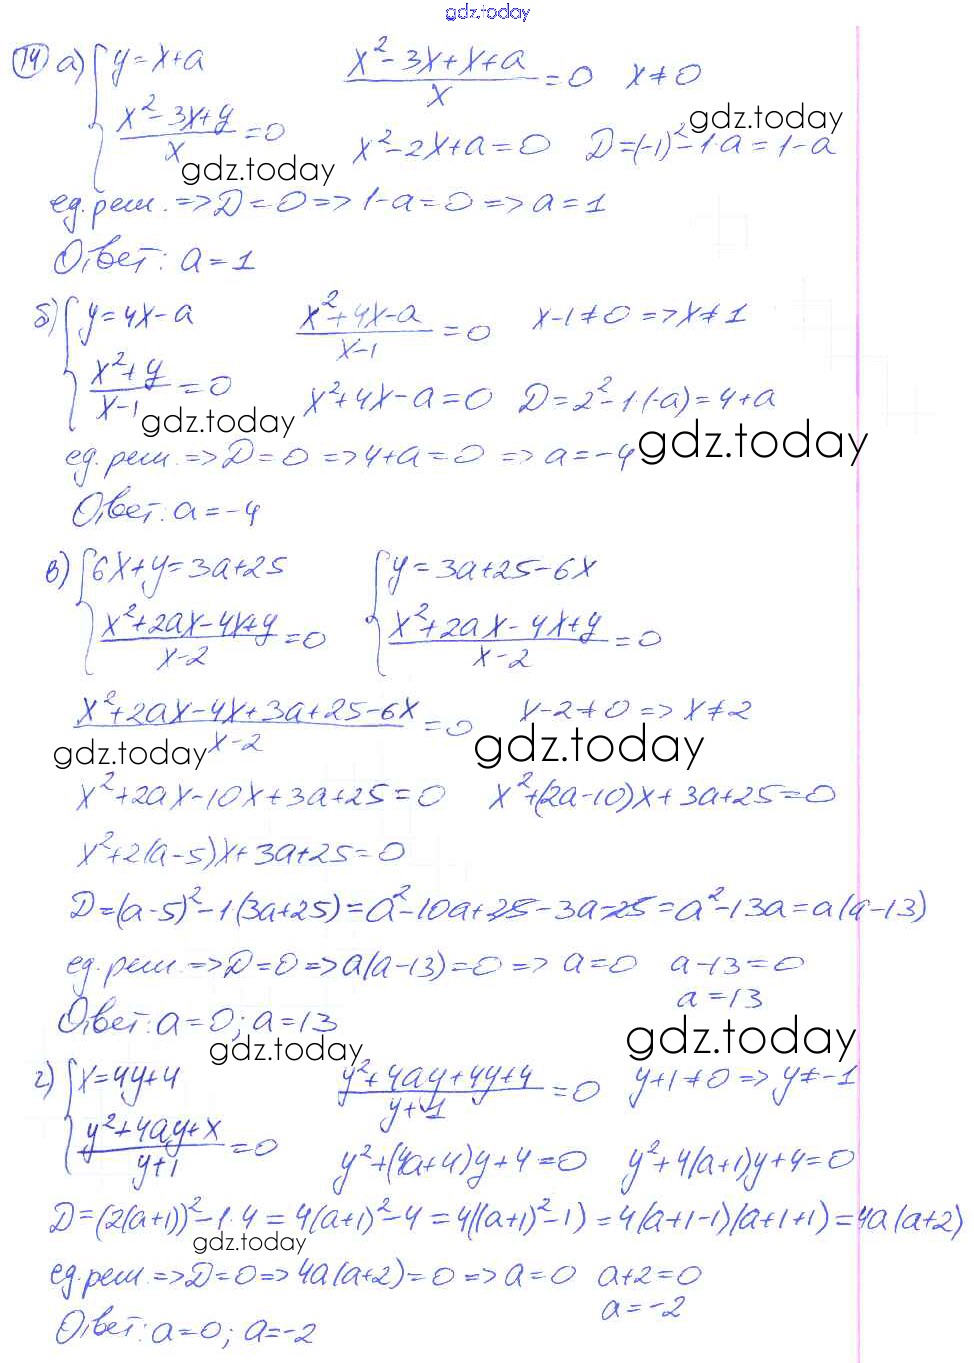 gdz.today
14 а) { y=x+a   (x²-3x+x+a)/x =0   x≠0
(x²-3x+y)/x =0   x²-2x+a=0   D=(-1)²-1·a=1-a
gdz.today
gdz.today
ед.реш. => D=0 => 1-a=0 => a=1
Ответ: a=1
б) { y=4x-a   (x²+4x-a)/(x-1) =0   x-1≠0 => x≠1
(x²+y)/(x-1) =0   x²+4x-a=0   D=2²-1·(-a)=4+a
gdz.today
gdz.today
ед.реш. => D=0 => 4+a=0 => a=-4
Ответ: a=-4
в) { 6x+y=3a+25   { y=3a+25-6x
(x²+2ax-4x+y)/(x-2) =0   (x²+2ax-4x+y)/(x-2) =0
(x²+2ax-4x+3a+25-6x)/(x-2) =0   x-2≠0 => x≠2
gdz.today
gdz.today
x²+2ax-10x+3a+25=0   x²+(2a-10)x+3a+25=0
x²+2(a-5)x+3a+25=0
D=(a-5)²-1(3a+25)=a²-10a+25-3a-25=a²-13a=a(a-13)
ед.реш. => D=0 => a(a-13)=0 => a=0   a-13=0
a=13
Ответ: a=0; a=13
gdz.today
gdz.today
г) { x=4y+4   (y²+4ay+4y+4)/(y+1) =0   y+1≠0 => y≠-1
(y²+4ay+x)/(y+1) =0   y²+(4a+4)y+4=0   y²+4(a+1)y+4=0
D=(2(a+1))²-1·4=4(a+1)²-4=4((a+1)²-1)=4(a+1-1)(a+1+1)=4a(a+2)
gdz.today
ед.реш. => D=0 => 4a(a+2)=0 => a=0   a+2=0
a=-2
Ответ: a=0; a=-2